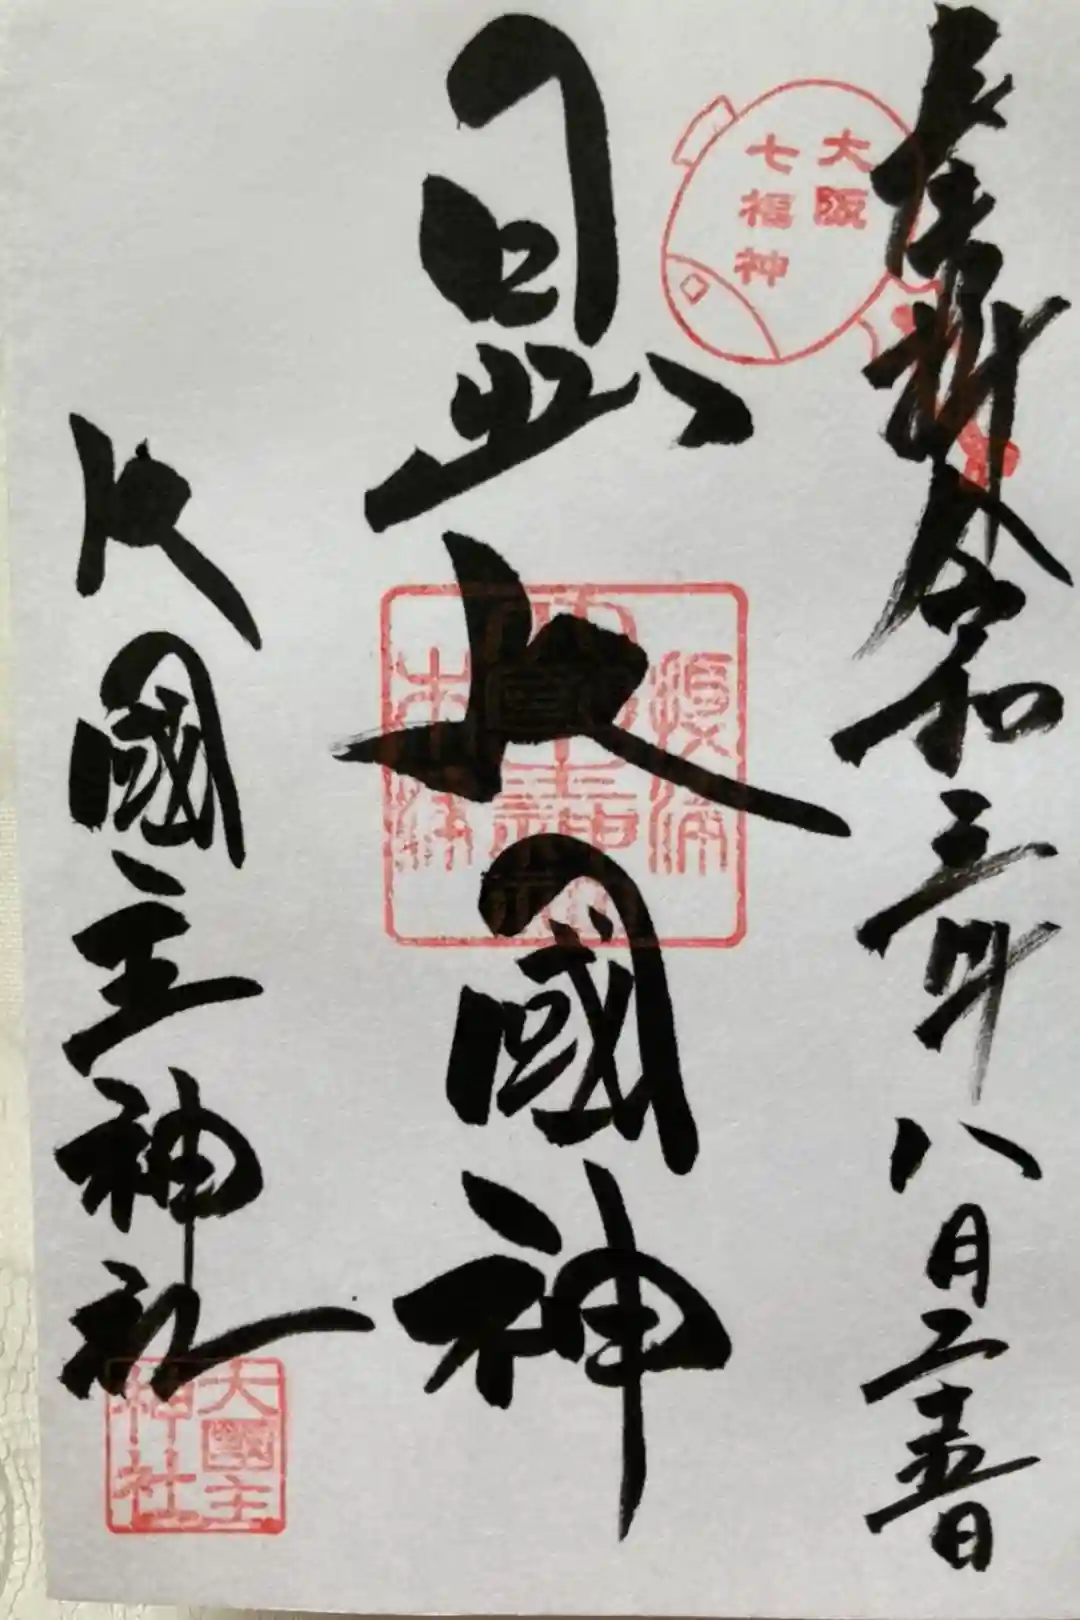 令和三年八月二十五日
大阪
七福神
日出大國神
大國主神社
大國主
神社